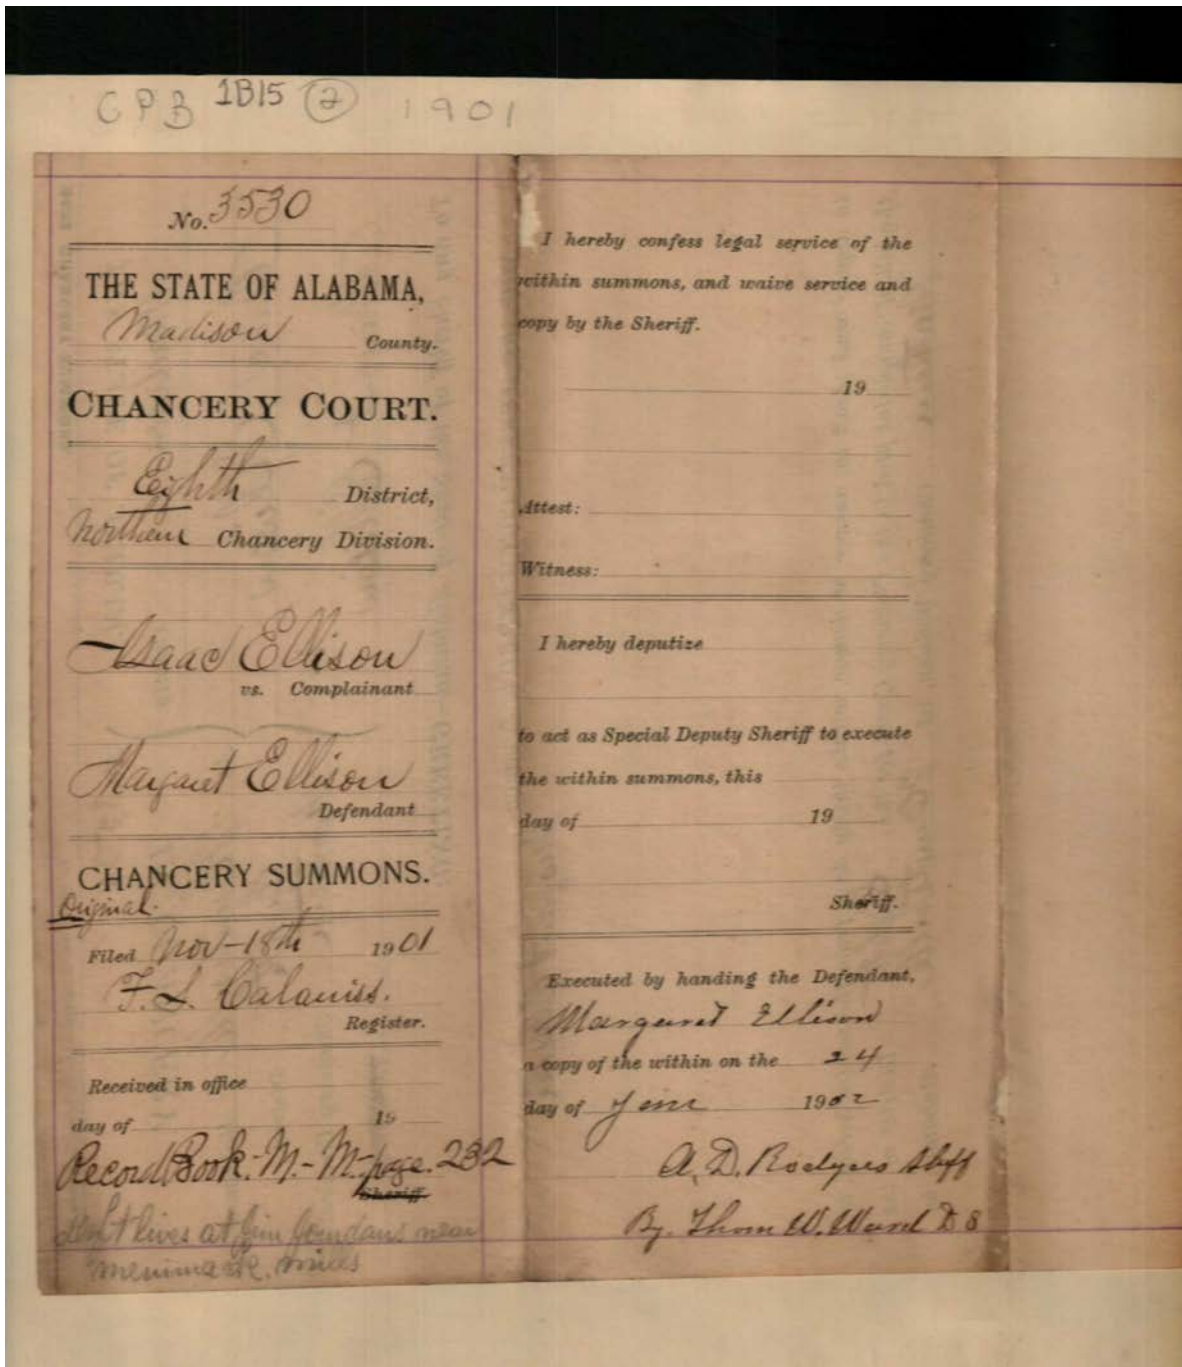 CPB 1B15 2 1901
No. 3530
THE STATE OF ALABAMA,
Madison County.
CHANCERY COURT.
Eighth District,
Northern Chancery Division.
Isaac Ellison
vs. Complainant
Margaret Ellison
Defendant
CHANCERY SUMMONS.
Original.
Filed Nov-18th 1901
F. L.
Register.
Received in office
day of 19
Record Book. M.-M- page. 232
Sheriff
deft lives at Jim near
mills
I hereby confess legal service of the
within summons, and waive service and
copy by the Sheriff.
19
Attest:
Witness:
I hereby deputize
to act as Special Deputy Sheriff to execute
the within summons, this
day of 19
Sheriff.
Executed by handing the Defendant,
Margaret Ellison
a copy of the within on the 24
day of 1902
A. D. Rodgers Shff
By. Thom W. Ward D S